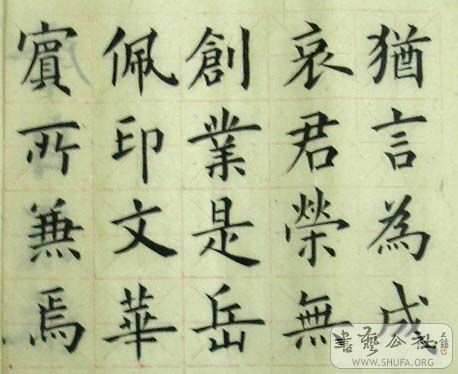 猶言為成
哀君榮無
創業是岳
佩印文華
賓所兼焉
書藝公社
WWW.SHUFA.ORG